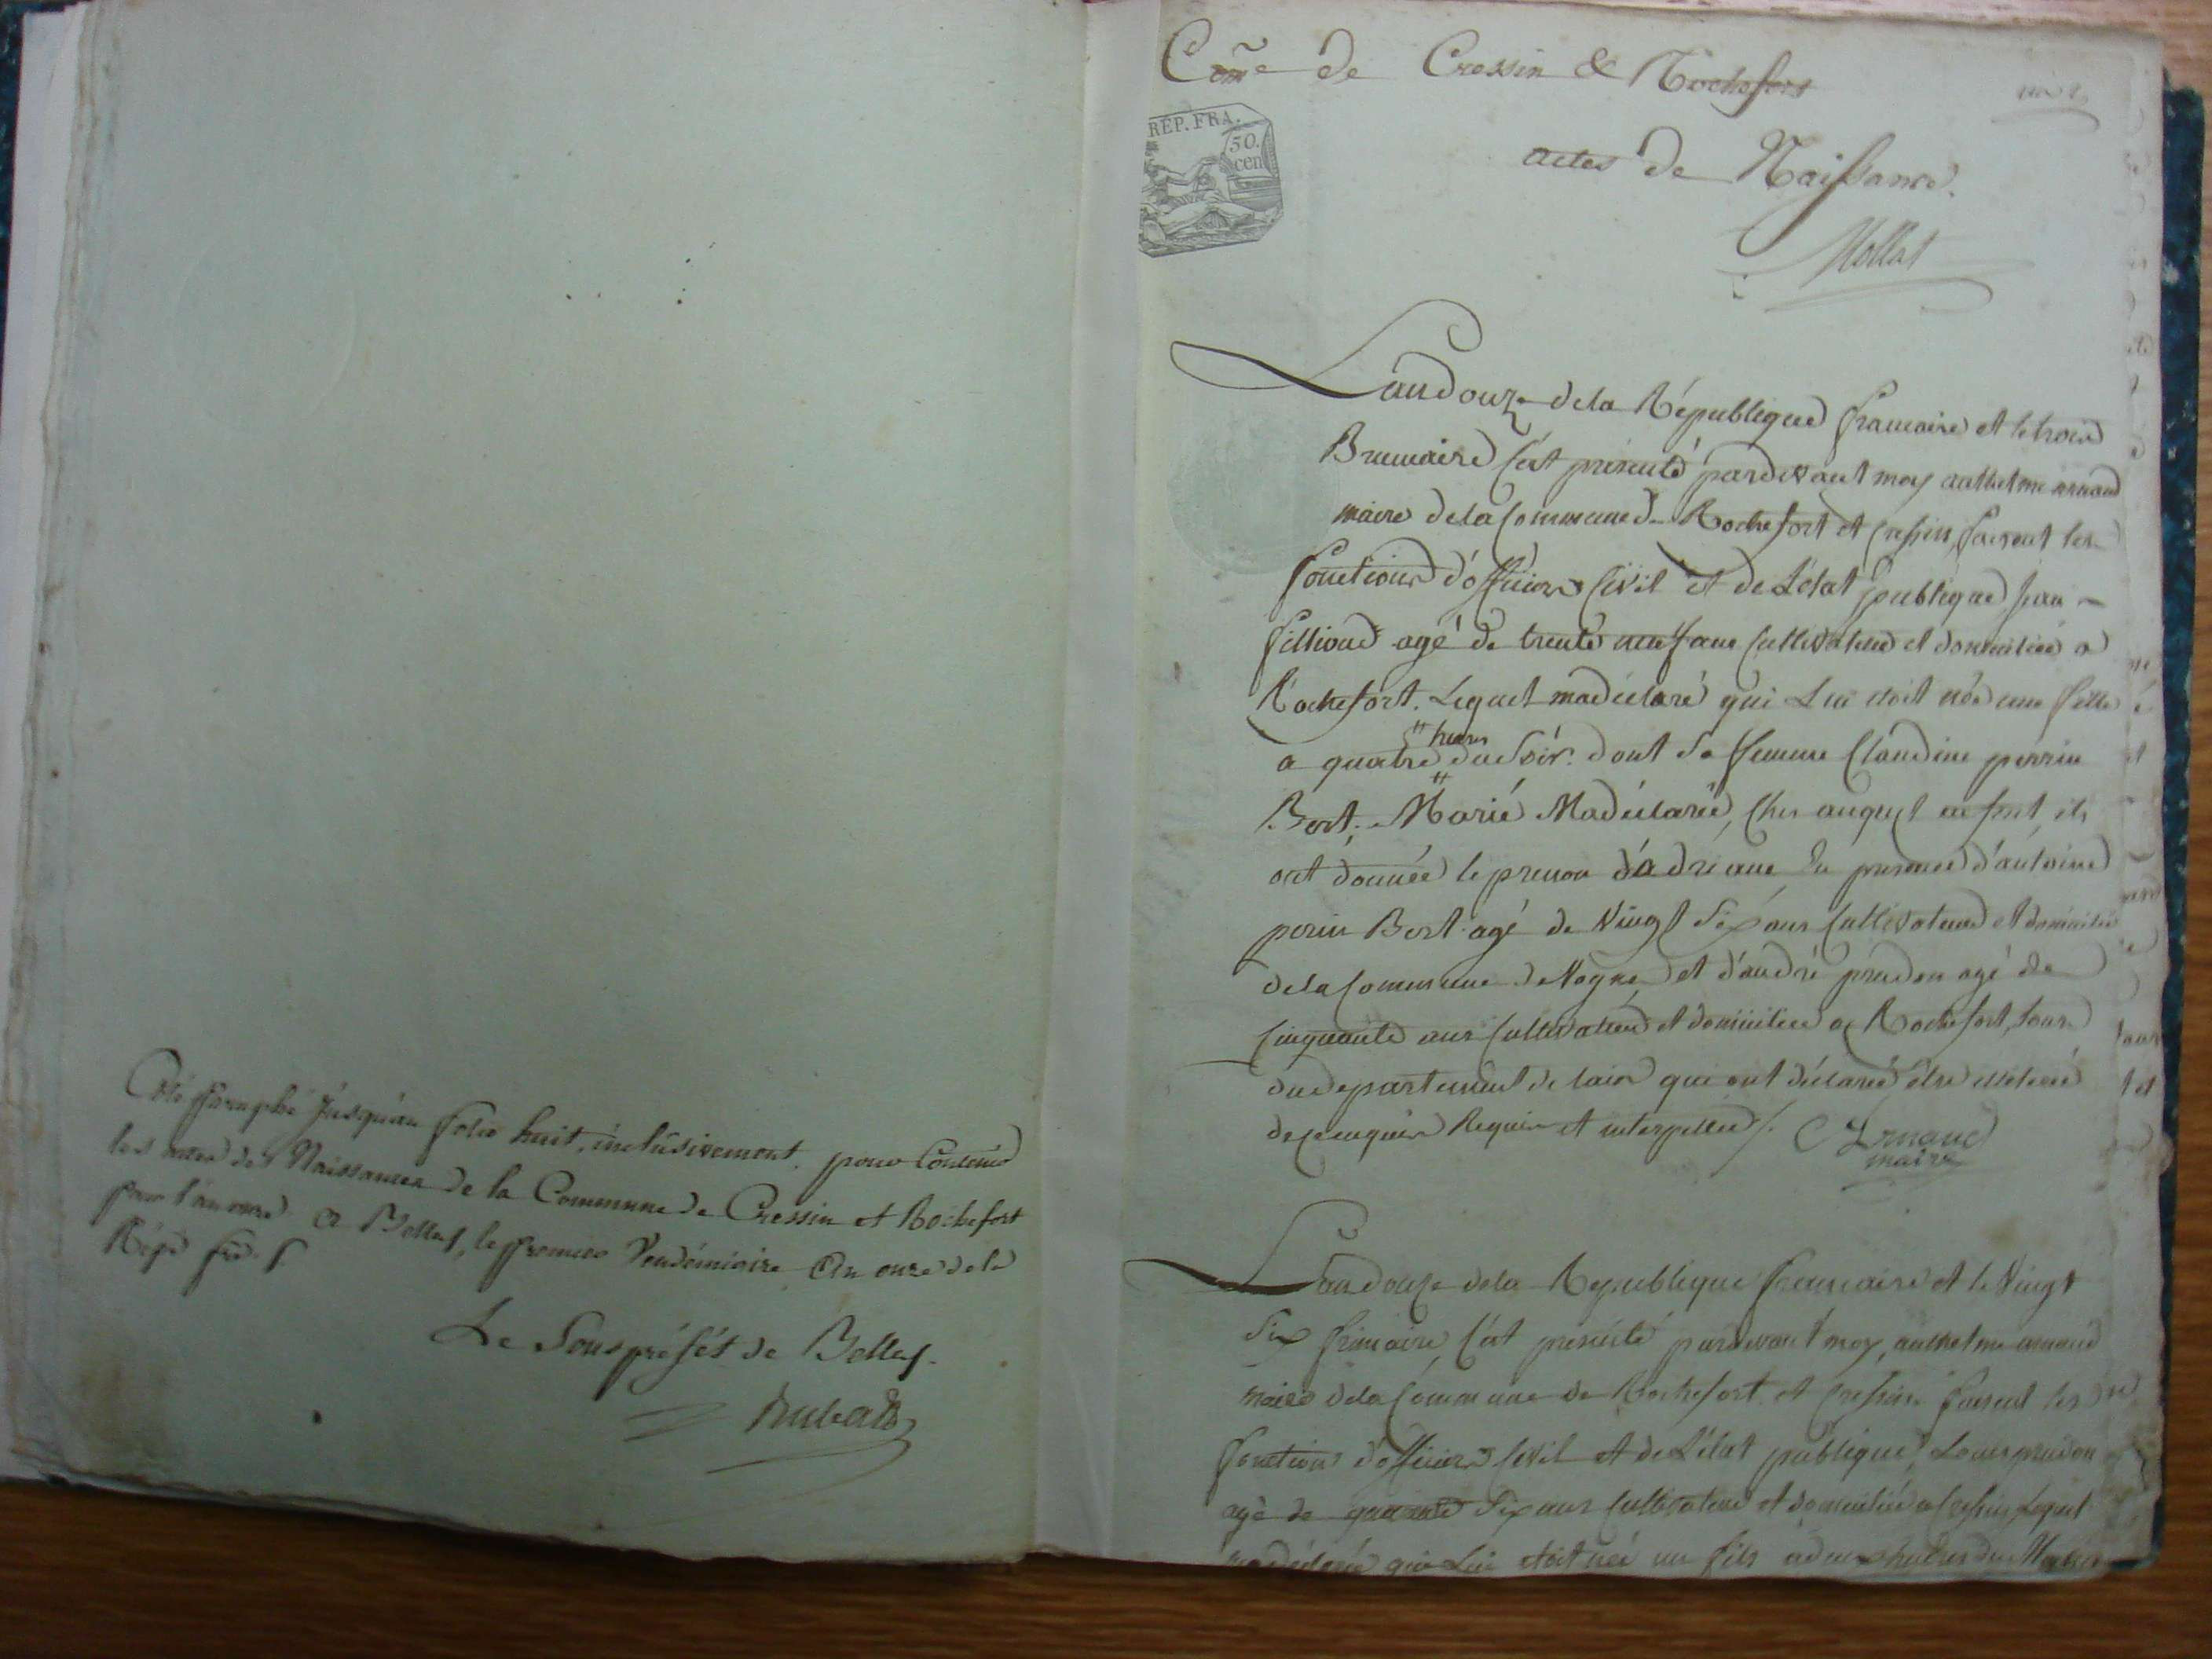 Coté & paraphé jusqu'au folio huit, inclusivement, pour contenir
les actes de Naissances de la Commune de Cressin et Rochefort
pour l'an onze. A Belley, le premier Vendémiaire an onze de la
Rép. fse.
Le Souspréfét de Belley.
Com̃e de Cressin & Rochefort
REP. FRA.
50.
cen
actes de Naissance.
Mollat
Landouze dela République francaise et le trois
Brumaire s'est présenté pardevant moy anthelme arnaud
maire dela Commune de Rochefort et Cressin faisant les
fonctions d'officier Civil et de L'état publique, jean
fillioud agé de trente neuf ans Cultivateur et domicilié a
Rochefort. Lequel ma déclaré qui Lui étoit née une fille
heures
a quatre du soir. dont sa femme Claudine perrin
Bort. Marié Ma déclaré, Ches auquel enfent, ils
ont donnée le prenon d'adriane En presence d'antoine
perin Bort agé de Vingt six ans Cultivateur et domicilié
dela Commune de Nogne et d'andré prudon agé de
Cinquante ans Cultivateur et domicilié a Rochefort, tous
du departement de lain qui ont déclaré étre
de ce enquis Requis et interpellé /. Arnaud
maire
Landouze dela Republique francaise et le Vingt
six frimaire, s'est presenté pardevant moy, anthelme arnaud
maire dela Commune de Rochefort et Cressin faisent les
fonctions d'officier Civil et de L'état publique, Louis prudon
agé de quarante six ans Cultivateur et domicilié a Cressin Lequel
ma déclaré qui Lui étoit née un fils a deux heures du Matin